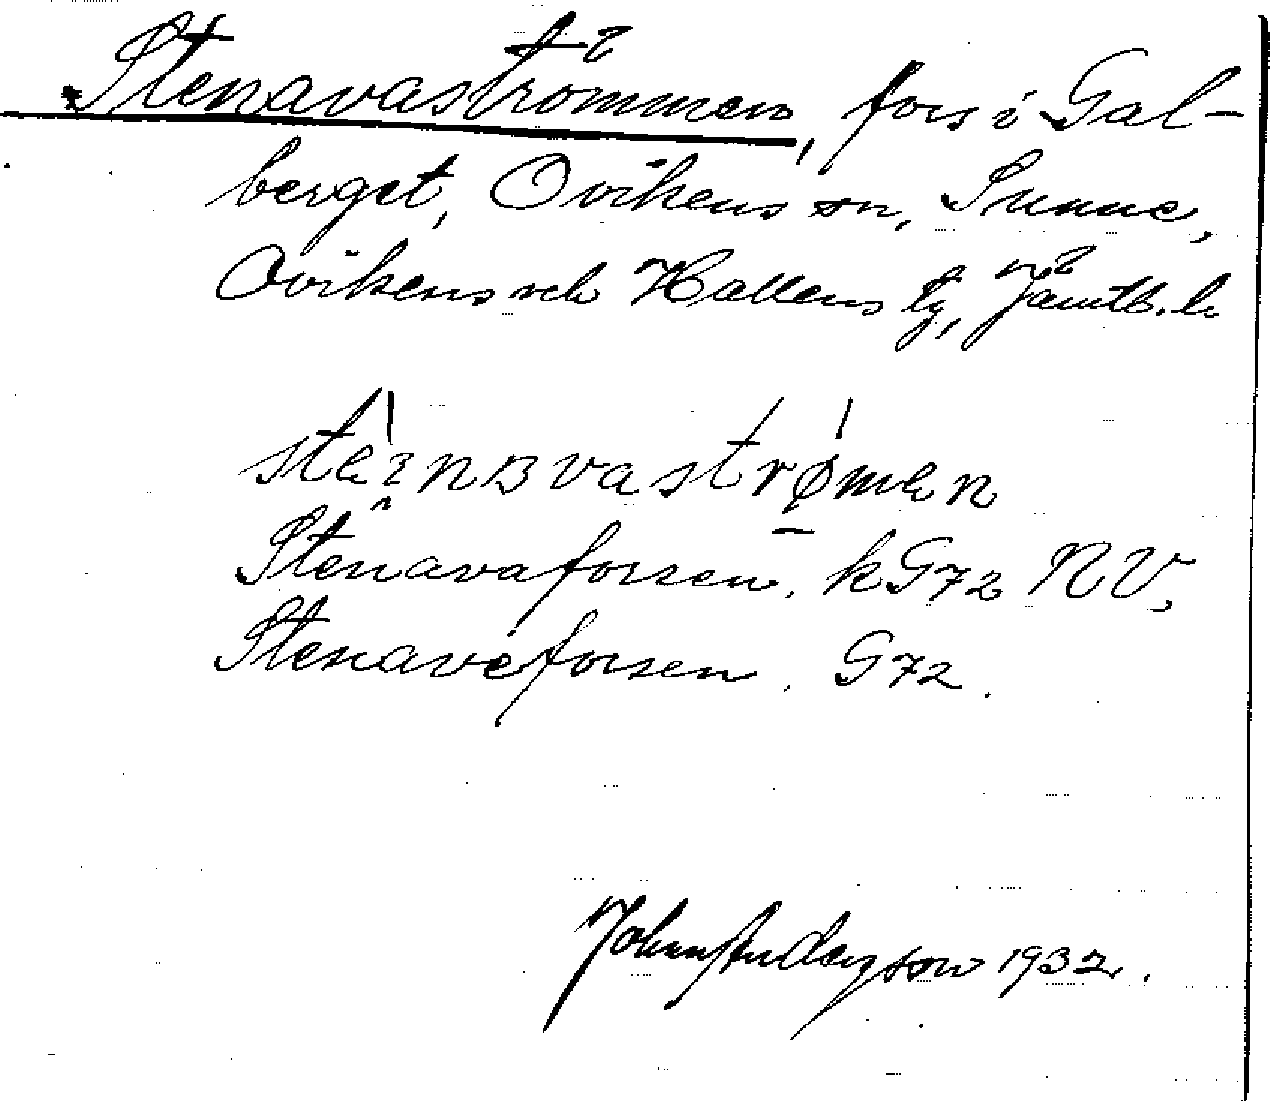 Stenavaströmmen, fors i Gal-
berget, Ovikens sn, Sunne,
Ovikens och Hallens tg, Jämtl. l.
stèinʙvastrǿmen
Stenavaforsen. kG72 NV,
Stenaveforsen. G72.
1932.